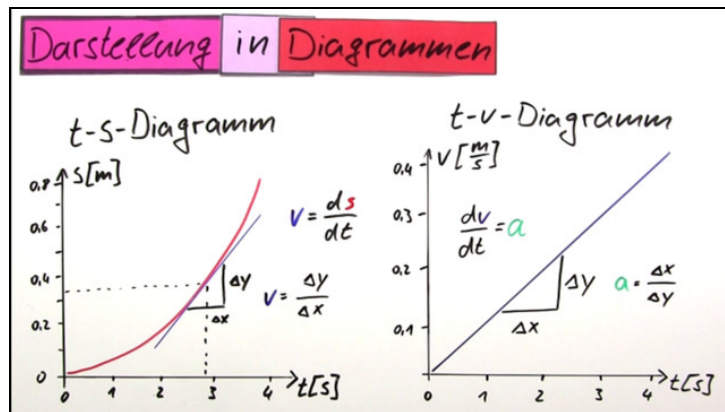 Darstellung in Diagrammen
t-s-Diagramm
s[m]
0,8
0,6
0,4
0,2
0
0 1 2 3 4 t[s]
v = ds/dt
v = Δy/Δx
Δy
Δx
t-v-Diagramm
v[m/s]
0,4
0,3
0,2
0,1
0 1 2 3 4 t[s]
dv/dt = a
a = Δx/Δy
Δy
Δx